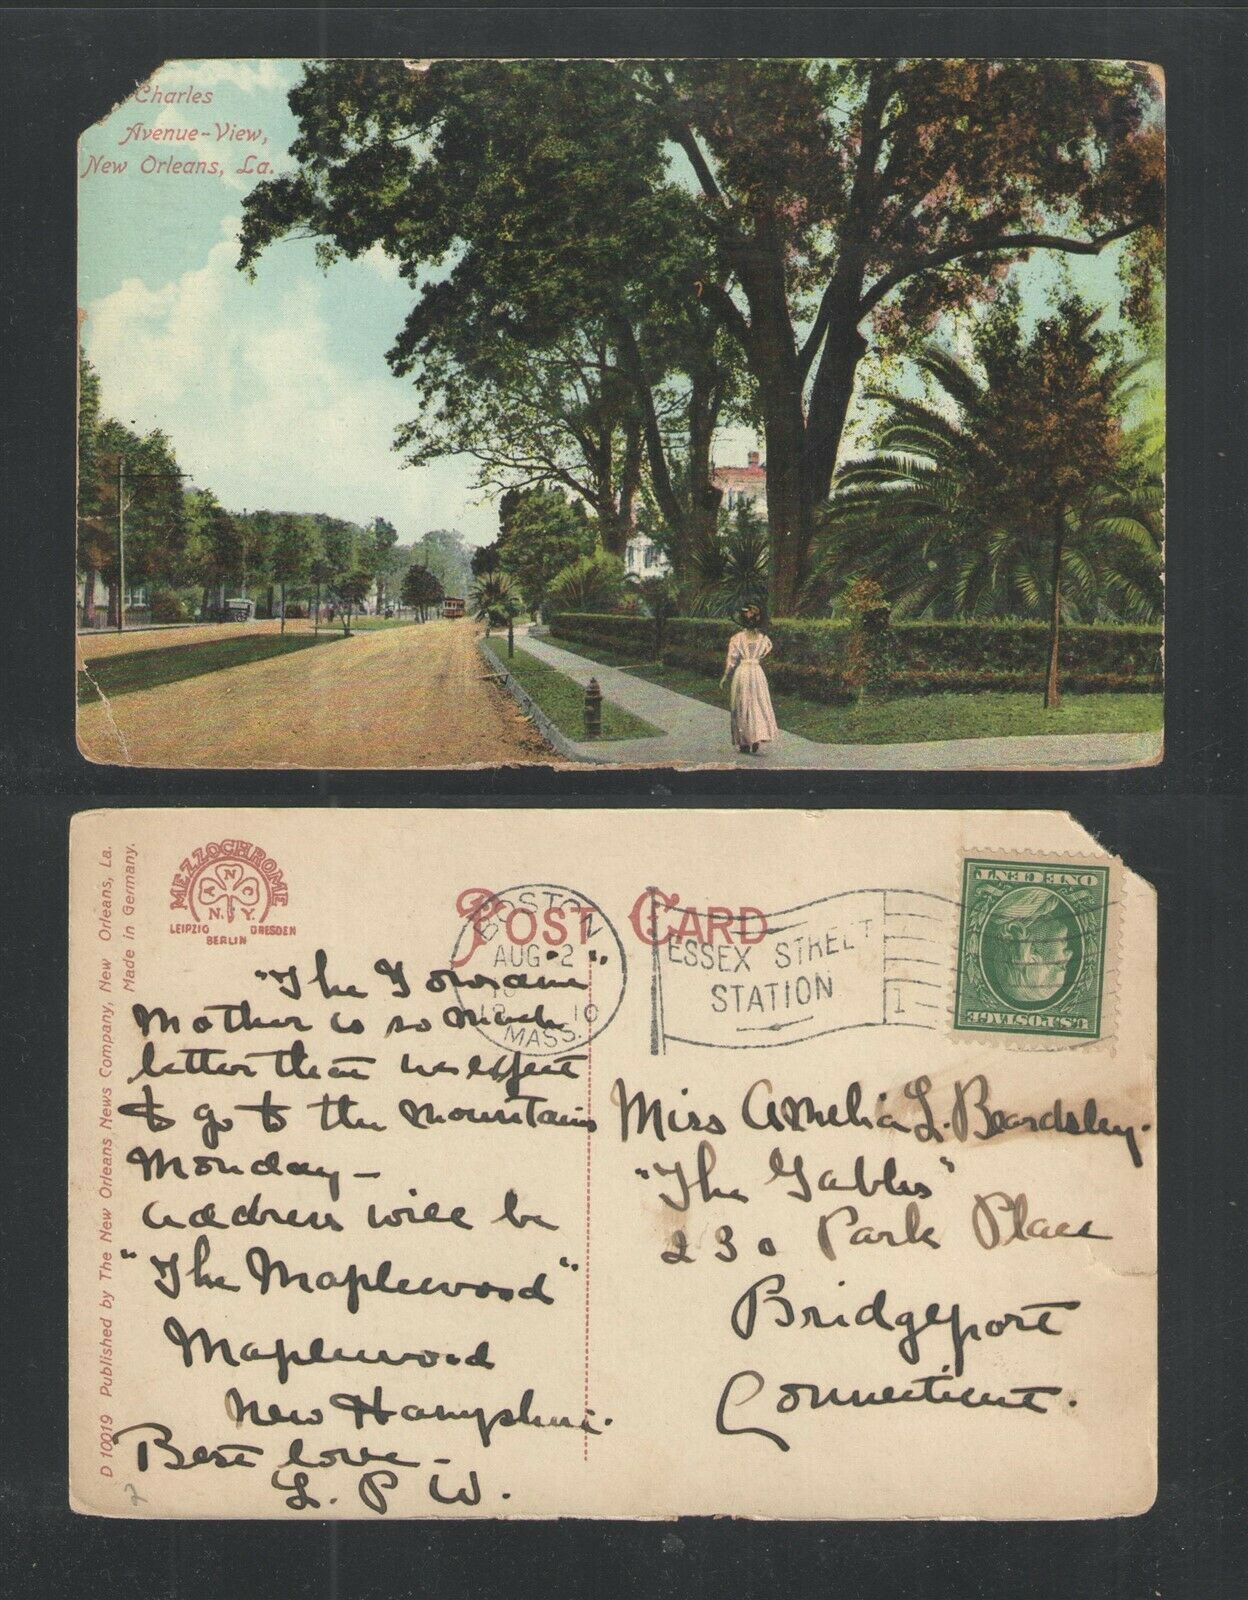 Charles
Avenue-View,
New Orleans, La.
D 10019 Published by The New Orleans News Company, New Orleans, La.
Made in Germany.
MEZZOCHROME
ANCO
N.Y.
LEIPZIG DRESDEN
BERLIN
POST CARD
BOSTON
AUG 2
10
MASS.
ESSEX STREET
STATION
1
U.S. POSTAGE
ONE CENT
"The
Mother is so much
better that we expect
to go to the mountains
Monday –
address will be
"The Maplewood"
Maplewood
New Hampshire.
Best love –
L. P. W.
Miss Amelia L. Beardsley.
"The Gables"
230 Park Place
Bridgeport
Connecticut.